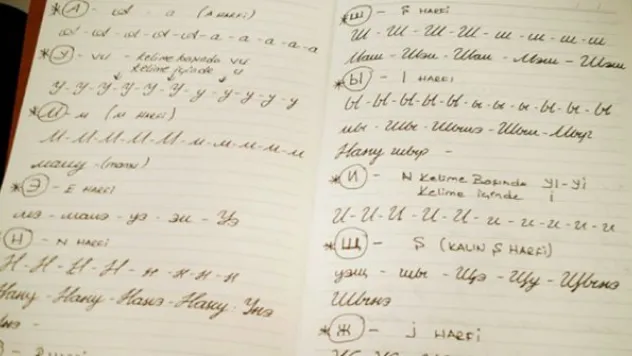 *А - а - а (A HARFİ)
а-а-а-а-а-а-а-а-а-а
*У - vu - Kelime başında vu
Kelime içinde u
У-У-У-У-У-У-у-у-у-у-у
*М м (M HARFİ)
М-М-М-М-М-М-м-м-м-м-м
ману - (manu)
*Э - E HARFİ
мэ - манэ - уэ - эн - Уэ
Н - N HARFİ
Н-Н-Н-Н-н-н-н-н
Нану - Нану - Нанэ - Нану - Унэ
Унэ -
*Ш - Ş HARFİ
Ш-Ш-Ш-Ш-ш-ш-ш-ш
Маш - Шэн - Уаш - Мэш - Шэни
*Ы - I HARFİ
Ы-Ы-Ы-Ы-ы-ы-ы-ы-ы-ы
мы - Шы - Шышэ - Шыш -
Нану шыр -
*И - Kelime Başında yı-yi
Kelime içinde i
И-И-И-И-И-и-и-и-и-и-и
*Щ - Ş (KALIN Ş HARFİ)
уэщ - шы - Щэ - Щу - Щынэ
Шынэ
*Ж - J HARFİ